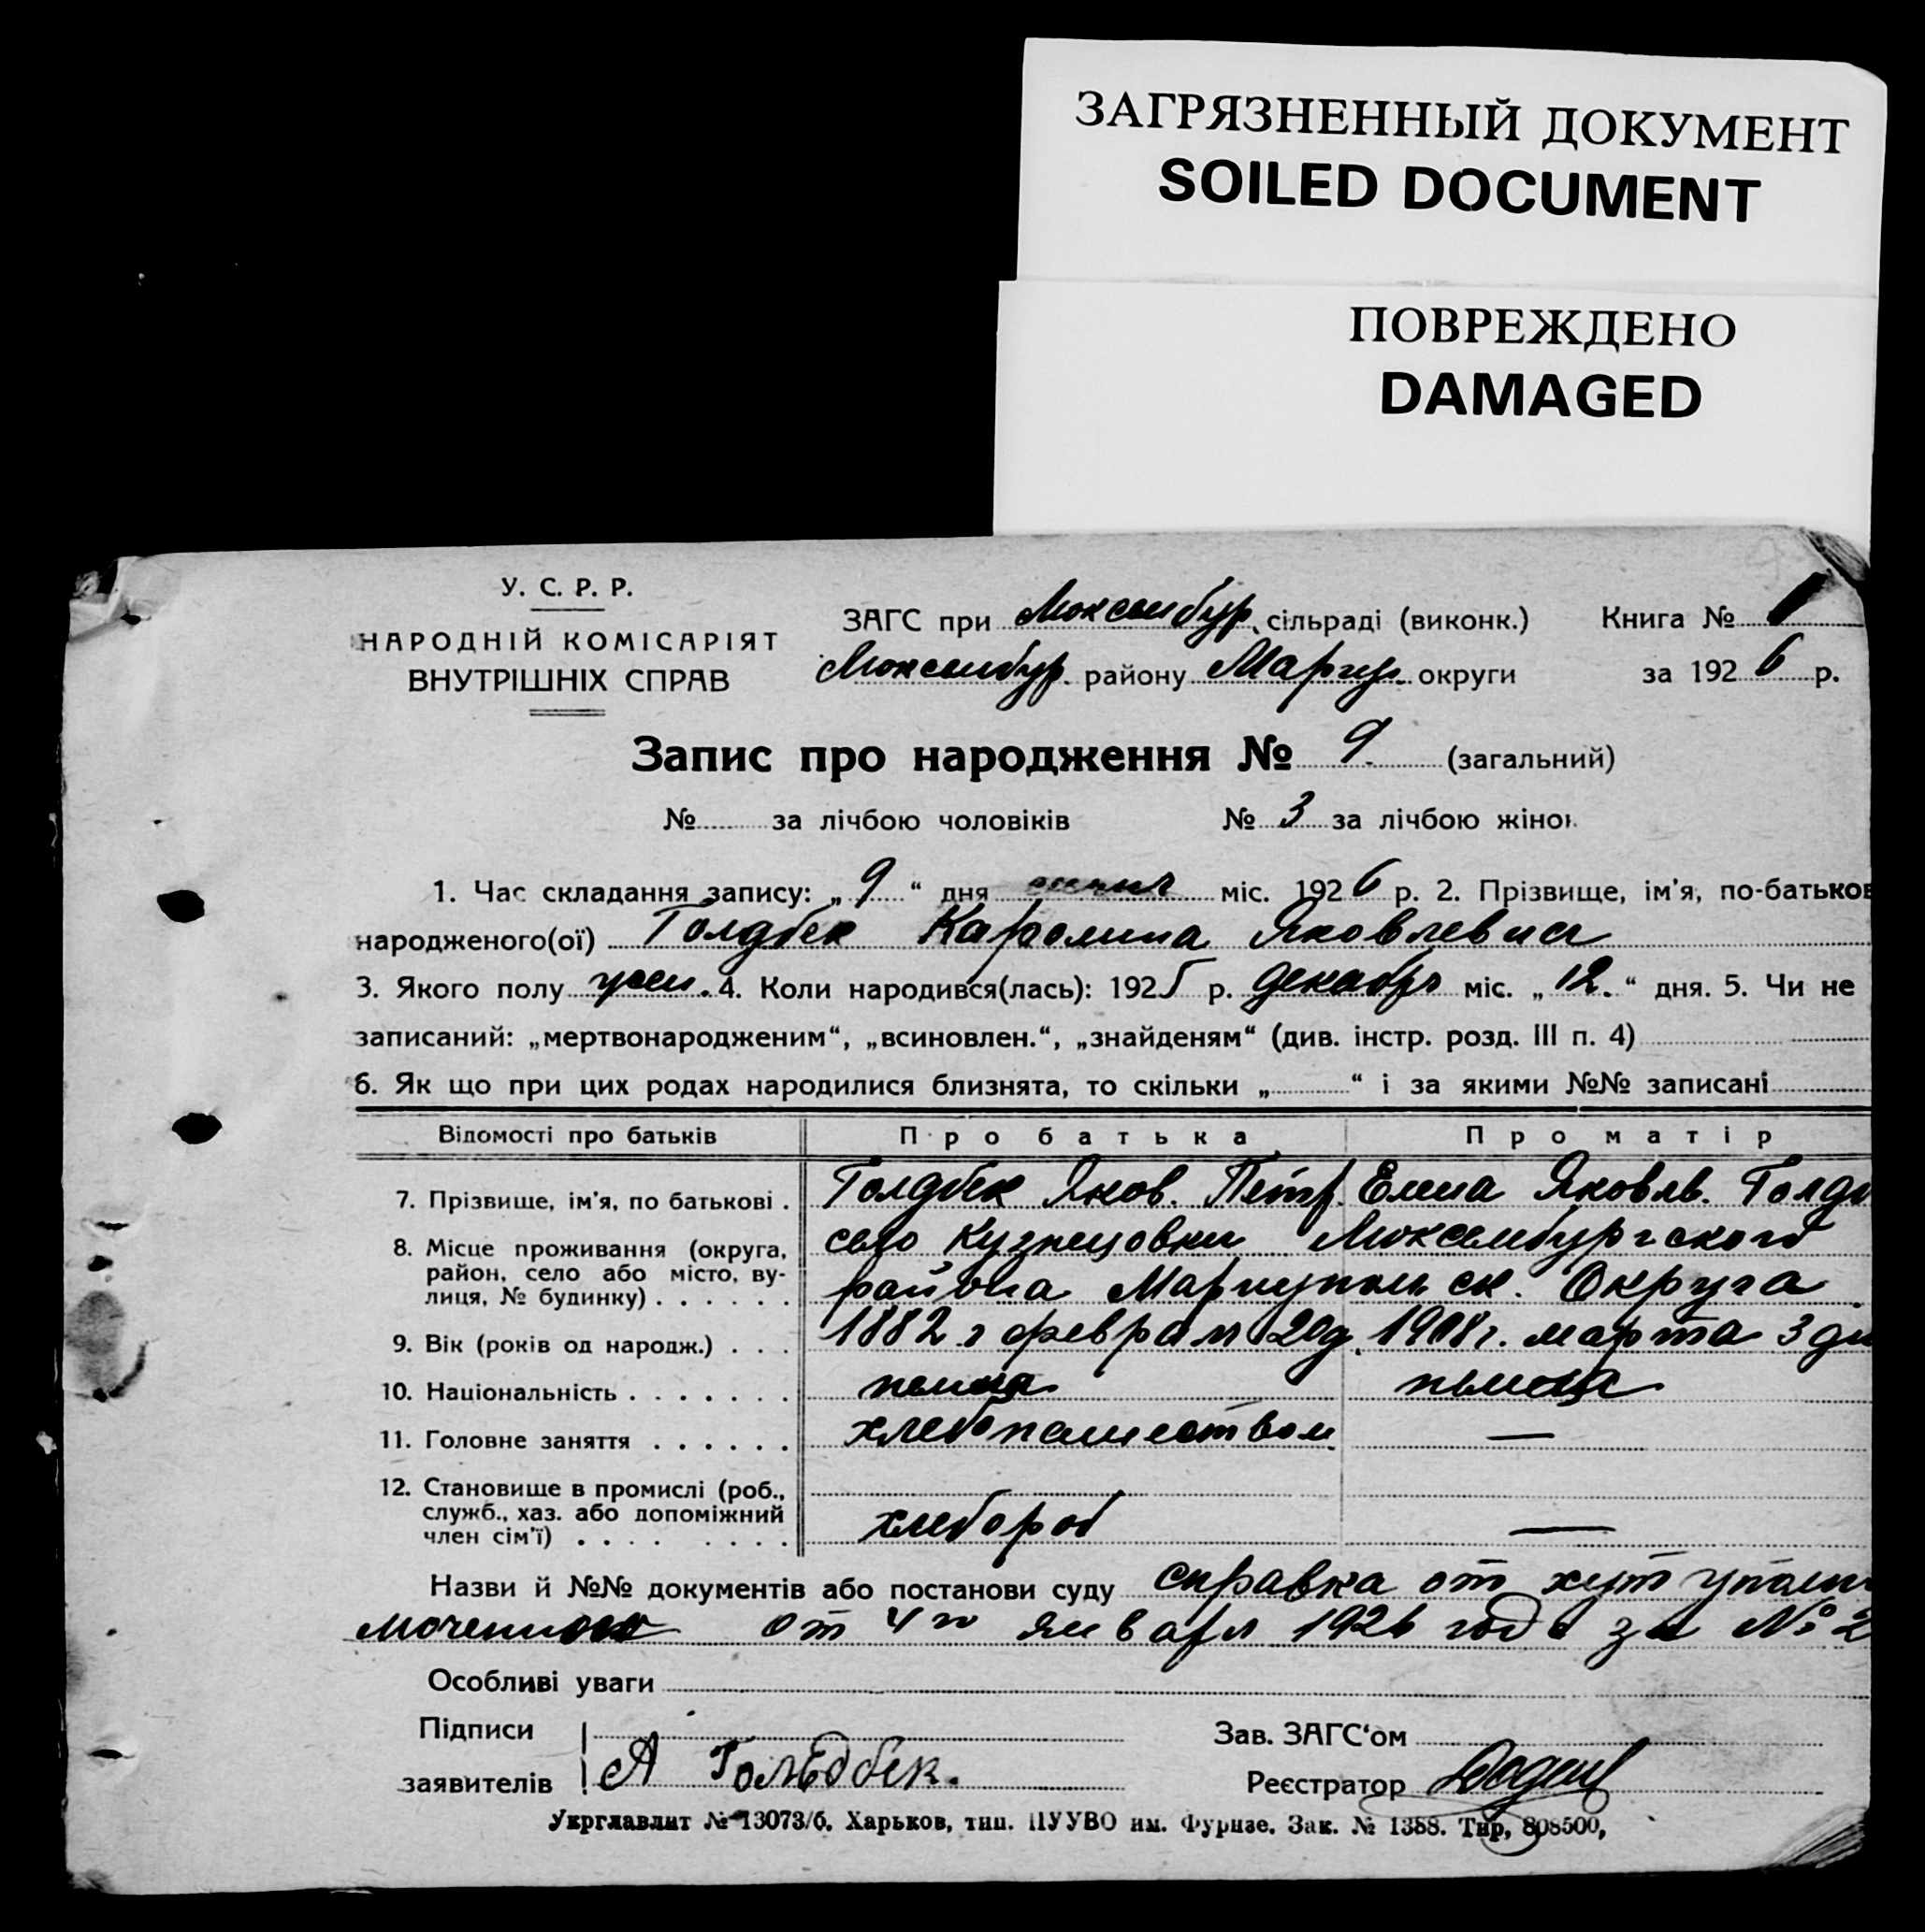 ЗАГРЯЗНЕННЫЙ ДОКУМЕНТ
SOILED DOCUMENT
ПОВРЕЖДЕНО
DAMAGED
У. С. Р. Р.
НАРОДНІЙ КОМІСАРІЯТ
ВНУТРІШНІХ СПРАВ
ЗАГС при Люксембур. сільраді (виконк.) Книга № 1
Люксембур. району Мариуп. округи за 1926 р.
Запис про народження № 9. (загальний)
№ за лічбою чоловіків № 3 за лічбою жінок
1. Час складання запису: „9“ дня міс. 1926 р. 2. Прізвище, ім'я, по-батьков
народженого(ої) Голдбек Каролина Яковлевна
3. Якого полу жен. 4. Коли народився(лась): 1925 р. декабря міс. „12.“ дня. 5. Чи не
записаний: „мертвонародженим“, „всиновлен.“, „знайденям“ (див. інстр. розд. III п. 4)
6. Як що при цих родах народилися близнята, то скільки „ “ і за якими №№ записані
Відомості про батьків Про батька Про матір
7. Прізвище, ім'я, по батькові . Голдбек Яков. Петр. Елена Яковлв. Голдб
8. Місце проживання (округа, район, село або місто, вулиця, № будинку) . . . . . . село Кузнецовки Люксембургского
района Мариупольск. Округа
9. Вік (років од народж.) . . . 1882 г февраля 20д. 1908г. марта 3 дн
10. Національність . . . . . . . немца немца
11. Головне заняття . . . . . . хлебопашеством —
12. Становище в промислі (роб., служб., хаз. або допоміжний член сім'ї) . . . . . . . . хлебороб —
Назви й №№ документів або постанови суду справка от хут уполн
моченного от 4го января 1926 года за № 2
Особливі уваги
Підписи
заявителів А Гольдбек.
Зав. ЗАГС'ом
Реєстратор
Укрглавлит № 13073/б. Харьков, тип. ПУУВО им. Фрунзе. Зак. № 1388. Тир, 808500,